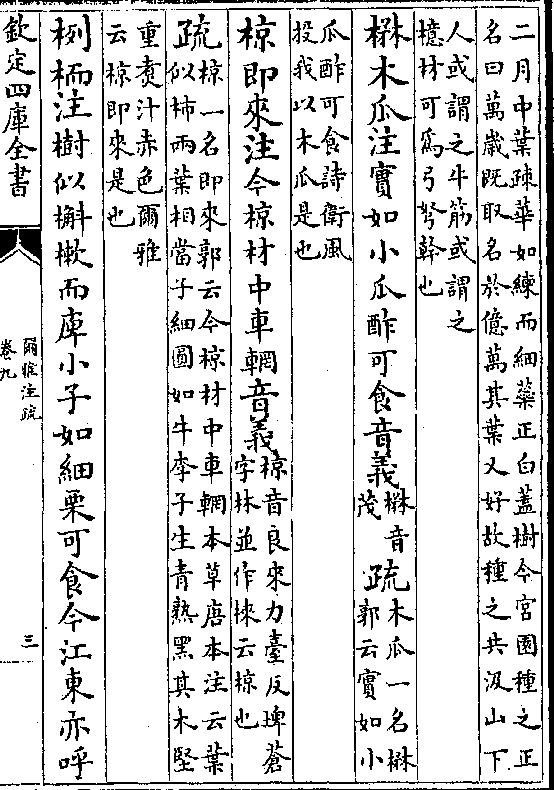 二月中葉疎華如練而細蘂正白蓋樹今宮園種之正
名曰萬歲既取名於億萬其葉又好故種之共汲山下
人或謂之牛筋或謂之
檍材可爲弓弩榦也
楙木瓜注實如小瓜酢可食音義
楙音
茂
疏
木瓜一名楙
郭云實如小
瓜酢可食詩衛風
投我以木瓜是也
椋即來注今椋材中車輞音義
椋音良來力臺反埤蒼
字林並作棶云椋也
疏
椋一名即來郭云今椋材中車輞本草唐本注云葉
似柿兩葉相當子細圓如牛李子生青熟黑其木堅
重煑汁赤色爾雅
云椋即來是也
栵栭注樹似槲樕而庳小子如細栗可食今江東亦呼
欽定四庫全書
爾雅注疏
卷九
三